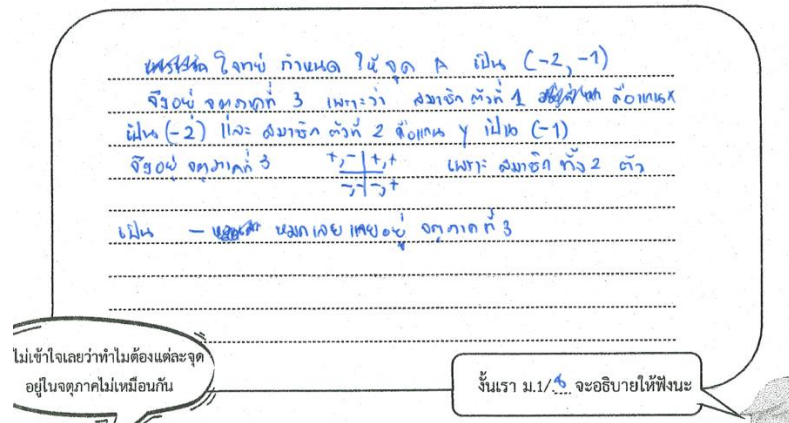 โจทย์ กำหนด ให้ จุด A เป็น (-2,-1)
จึงอยู่ จตุภาคที่ 3 เพราะว่า สมาชิก ตัวที่ 1 คือแกนx
เป็น (-2) และ สมาชิก ตัวที่ 2 คือแกน y เป็น (-1)
จึงอยู่ จตุภาคที่ 3 เพราะ สมาชิก ทั้ง 2 ตัว
+,- +,+
-,- -,+
เป็น - หมดเลย เลยอยู่ จตุภาคที่ 3
ไม่เข้าใจเลยว่าทำไมต้องแต่ละจุด
อยู่ในจตุภาคไม่เหมือนกัน
งั้นเรา ม.1/8 จะอธิบายให้ฟังนะ